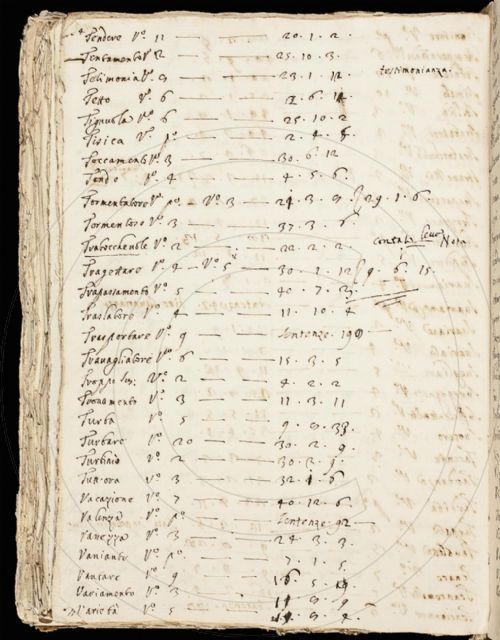 Tendere Vo. 11 — — 20. 1. 2.
Tentamento Vo. 2 — — 25. 10. 3.
Testimonia Vo. 9 — — 23. 1. 12. testimonianza.
Testo Vo. 6 — — 2. 6.
Tignuola Vo. 6 — — 25. 10. 2
Tisica Vo. po. — — 2. 4. 5.
Toccamento Vo. 3 — — 30. 6. 12
Tondo Vo. 4 — — 4. 5. 6.
Tormentatore Vo. po. — Vo. 3 — 21. 3. 9. 29. 1. 6.
Tormentoso Vo. 3 — — 37. 3. 6.
Trabocchevole Vo. 2 — — 22. 2. 2. Nota
Tragettare Vo. 4 — Vo. 5 — 30. 1. 12 9. 6. 15.
Trapassamento Vo. 5 — — 40. 7.
Traslatore Vo. 4 — — 11. 10. 4
Trasportare Vo. 9 — Sentenze.
Travagliatore Vo. 6 — — 15. 3. 5
Troppo Vo. 2 — — 4. 2. 2
Tuonamento Vo. 3 — — 11. 3. 11
Turba Vo. 5 — — 9. 9. 33.
Turbare Vo. 20 — — 30. 2. 9.
Turbinio Vo. 2 — — 30. 2. 1.
Tuttora Vo. 3 — — 32. 1. 6
Vacazione Vo. 7 — — 40. 12. 6.
Valenza Vo. po. — — Sentenze. 92 —
Vanezza Vo. 3 — — 24. 3. 3.
Vaniante Vo. po. — — 7. 1. 5.
Vantare Vo. 9 — — 16. 5.
Variamento Vo. 3 — — 11. 9. 9
Varietà Vo. 5 — — 9. 4